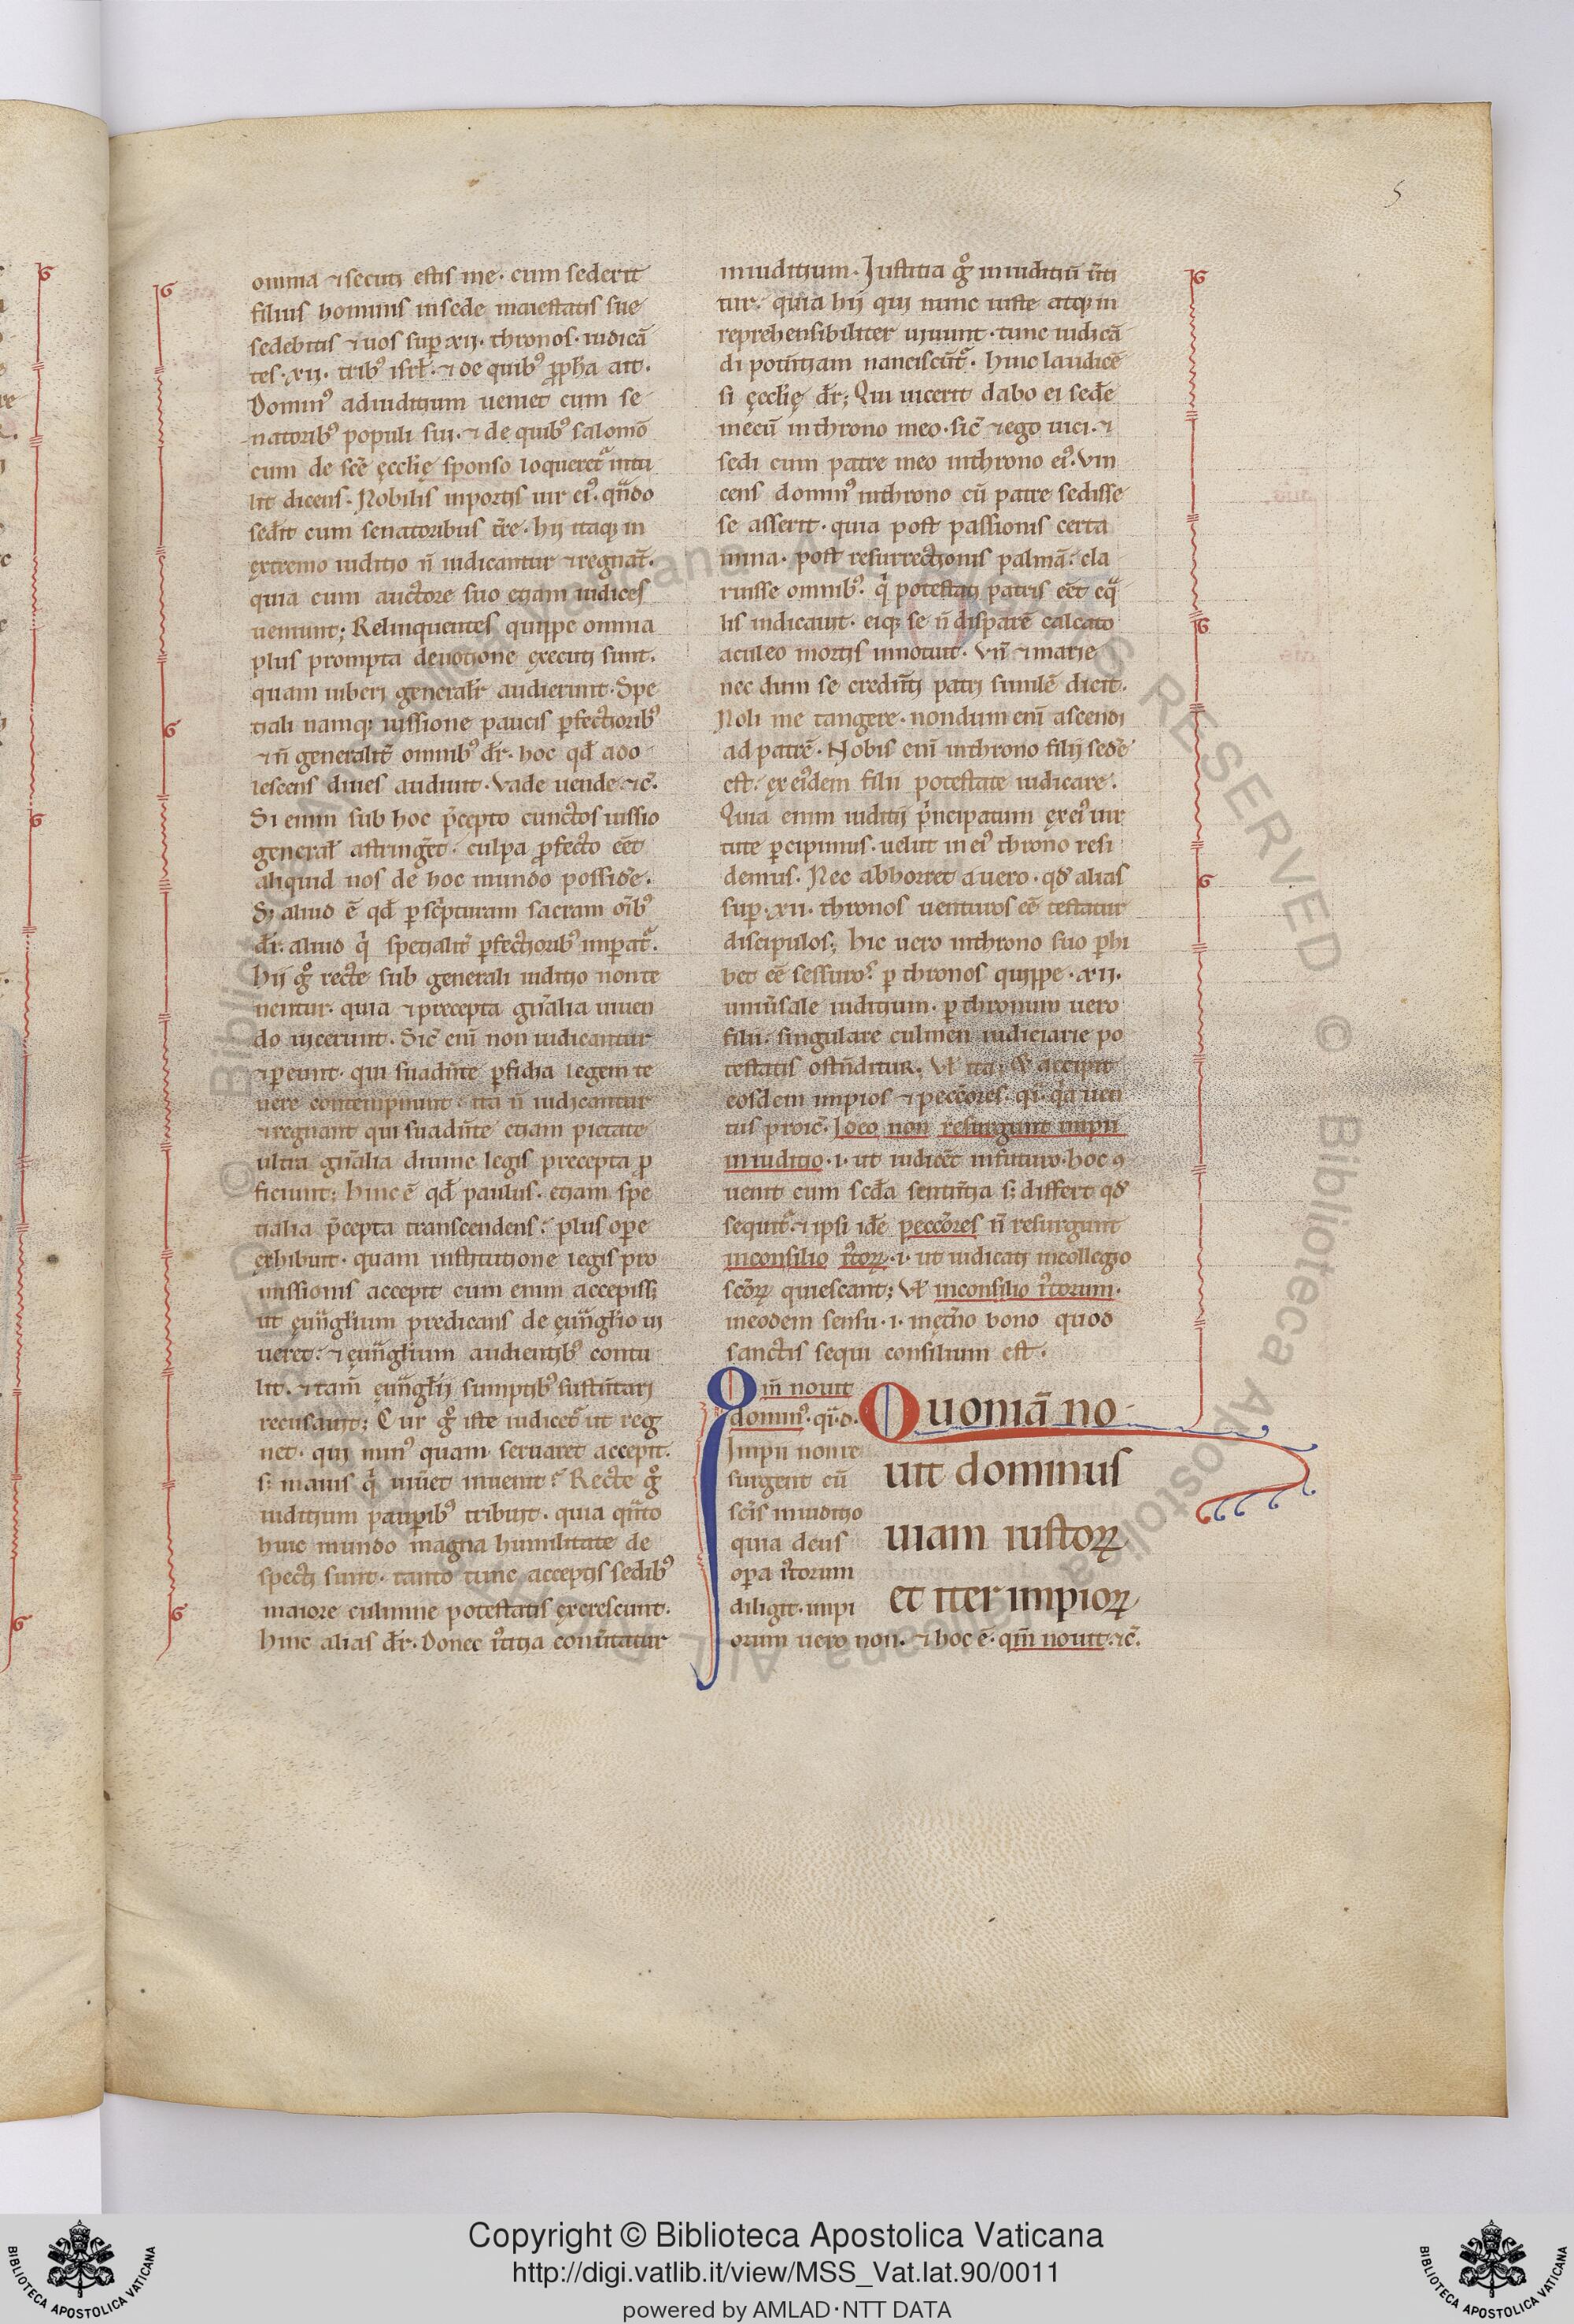 5
omnia ⁊ secuti estis me· cum sederit
filius hominis in sede maiestatis sue
sedebitis ⁊ uos sup̱ xij· thronos· iudicā
tes· xij· tribꝰ isrł· ⁊ de quibꝰ ꝓph̄a ait·
Dominꝰ ad iuditium ueniet cum se
natoribꝰ populi sui· ⁊ de quibꝰ salomō
cum de scē ęccłię sponso loqueret᷑ intu
lit dicens· Nobilis in portis uir eiꝰ· qn̄do
sed̄it cum senatoribus t̄re· hij itaqꝫ in
extremo iuditio n̄ iudicantur ⁊ regnāt·
quia cum auctore suo etiam iudices
ueniunt; Relinquentes quippe omnia
plus prompta deuotione executi sunt·
quam iuberi generałr audierunt· Spe
tiali namqꝫ iussione paucis ꝑfectioribꝰ
⁊ n̄ generalit̄ omnibꝰ dr̄· hoc qd̄ ado
lescens diues audiuit· Vade uende ⁊c̄·
Si enim sub hoc p̄cepto cunctos iussio
generał astringēt· culpa ꝓfecto eēt
aliquid nos de hoc mundo possid̄e·
Sꝫ aliud ē qd̄ ꝑ sc̄pturam sacram oībꝰ
dr̄· aliud qͥ spetialit̄ ꝑfectioribꝰ imperat᷑·
Hij gͦ recte sub generali iuditio non te
nentur· quia ⁊ precepta gn̄alia uiuen
do uicerunt· Sic̄ enī non iudicantur
⁊ ꝑeunt· qui suadn̄te ꝑfidia legem te
nere contempnunt· ita n̄ iudicantur
⁊ regnant qui suadn̄te etiam pietate
ultra gn̄alia diuine legis precepta ꝓ
ficiunt; hinc ē qd̄ paulus· etiam spe
tialia p̄cepta transcendens· plus ope
exhibuit· quam institutione legis pro
missionis accepit cum enim accepissꝫ
ut ęun̄głium predicans de ęun̄głio ui
ueret· ⁊ ęun̄głium audientibꝰ contu
lit· ⁊ tam̄ ęun̄głij sumptibꝰ sustn̄tari
recusauit; Cur gͦ iste iudicet᷑ ut reg
net· qui minꝰ quam seruaret accepit·
sꝫ maius qͥ uiu̅et inuenit· Recte gͦ
iuditium pauꝑibꝰ tribuit· quia qn̄to
huic mundo magna humilitate de
specti sunt· tanto tunc acceptis sedibꝰ
maiore culmine potestatis excrescunt·
hinc alias dr̄· Donec iͥtitia conu̅tatur
in iuditium· Iustitia gͦ in iuditiū u̅ti
tur· quia hij qui nunc iuste atqꝫ in
reprehensibiliter uiuunt· tunc iudicā
di potn̄tiam nanciscūt᷑· hinc laudicē
si ęccłię dr̄; Qui uicerit dabo ei sed̄e
mecū in throno meo· sic̄ ⁊ ego uici· ⁊
sedi cum patre meo in throno eiꝰ· Vin
cens dominꝰ in throno cū patre sedisse
se asserit· quia post passionis certa
mina· post resurrectionis palmā· cla
ruisse omnibꝰ· qͥ potestati patris eēt eq̄
lis indicauit· eiqꝫ se n̄ disparē calcato
aculeo mortis innotuit· Vn̄ ⁊ marie
nec dum se credn̄ti patri similē dicit·
Noli me tangere· nondum enī ascendi
ad patrē· Nobis enī in throno filij sed̄e
est· ex eiꝰdem filii potestate iudicare·
Quia enim iuditij p̄ncipatum ex eiꝰ uir
tute ꝑcipimus· uelut in eiꝰ throno resi
demus· Nec abhorret a uero· qd̄ alias
sup̱· xij· thronos uenturos eē testatur
discipulos; hic uero in throno suo ꝑhi
bet eē sessuroˢ· ꝑ thronos quippe· xij·
uniu̅sale iuditium· ꝑ thronum uero
filii· singulare culmen iudiciarie po
testatis ostn̄ditur· Vł ita·
eosdem impios ⁊ peccōres· qͥ· qͣ uen
tus proic̄· Ideo non resurgunt impii
in iuditio· i· ut iudicēt in futuro· hoc ꝯ
uenit cum scd̄a sentn̄tia sꝫ differt qd̄
sequit᷑· ⁊ ipsi id̄e peccōres n̄ resurgunt
in consilio iͥtoꝝ· i· ut iudicati in collegio
scōꝝ quiescant; Vł in consilio iͥtorum·
in eodem sensu· i· in ęt̄no bono quod
sanctis sequi consilium est·
Qm̄ nouit
dominꝰ· q·d·
Impii non re
surgent cū
scīs in iuditio
quia deus
opa iͥtorum
diligit· impi
orum uero non· ⁊ hoc ē· qm̄ nouit· ⁊c̄·
Quoniā no
uit dominus
uiam iustoꝝ
et iter impioꝝ
Copyright © Biblioteca Apostolica Vaticana
http://digi.vatlib.it/view/MSS_Vat.lat.90/0011
powered by AMLAD·NTT DATA
BIBLIOTECA APOSTOLICA VATICANA
BIBLIOTECA APOSTOLICA VATICANA